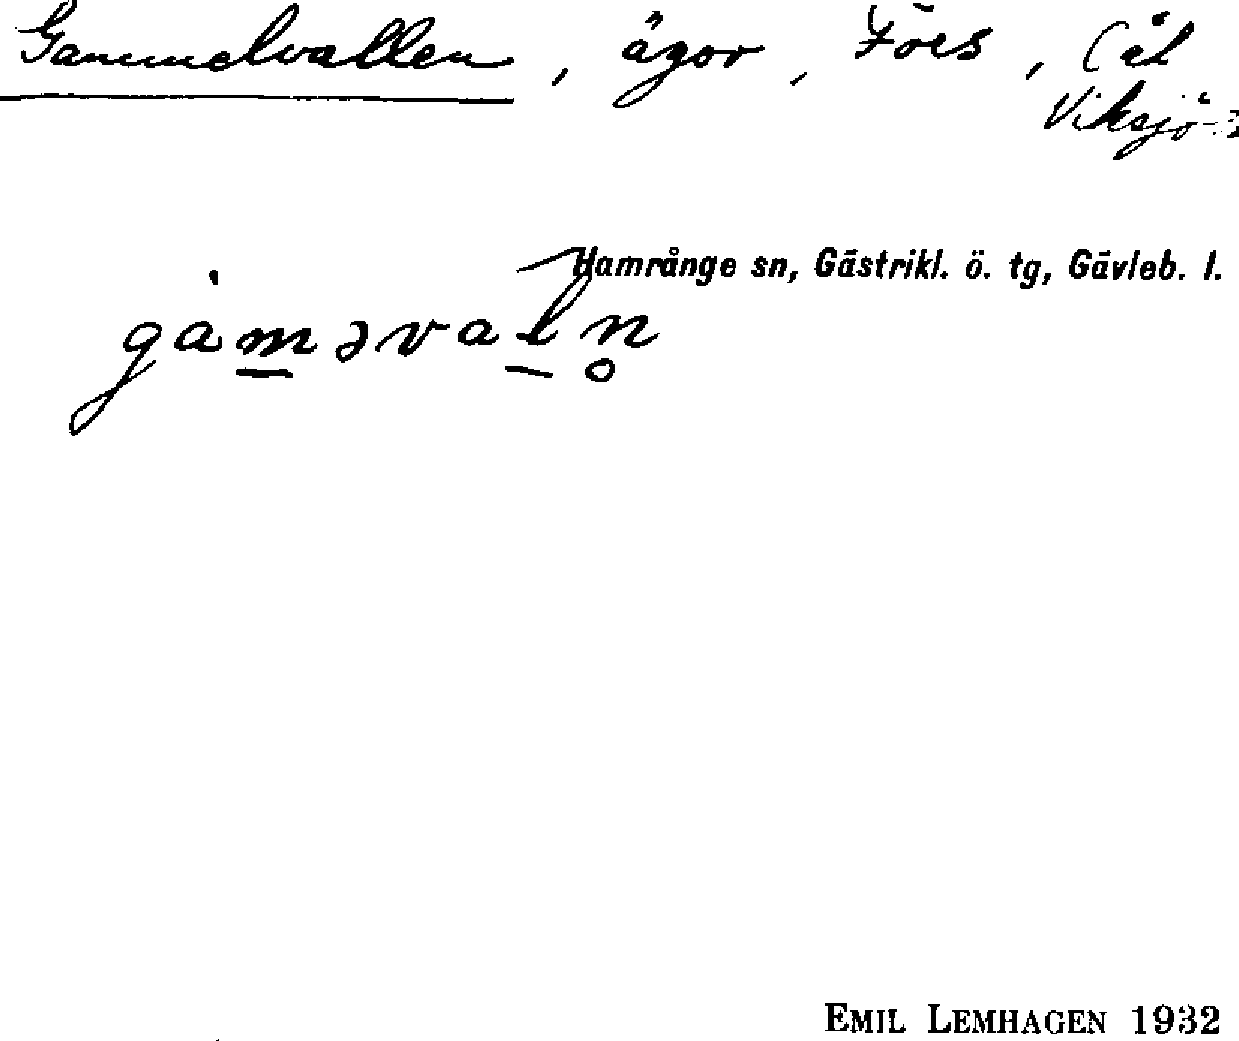 Gammelvallen, ägor, Fors, (ål
Viksjö
Hamrånge sn, Gästrikl. ö. tg, Gävleb. l.
gàm̲əval̲n̥
EMIL LEMHAGEN 1932